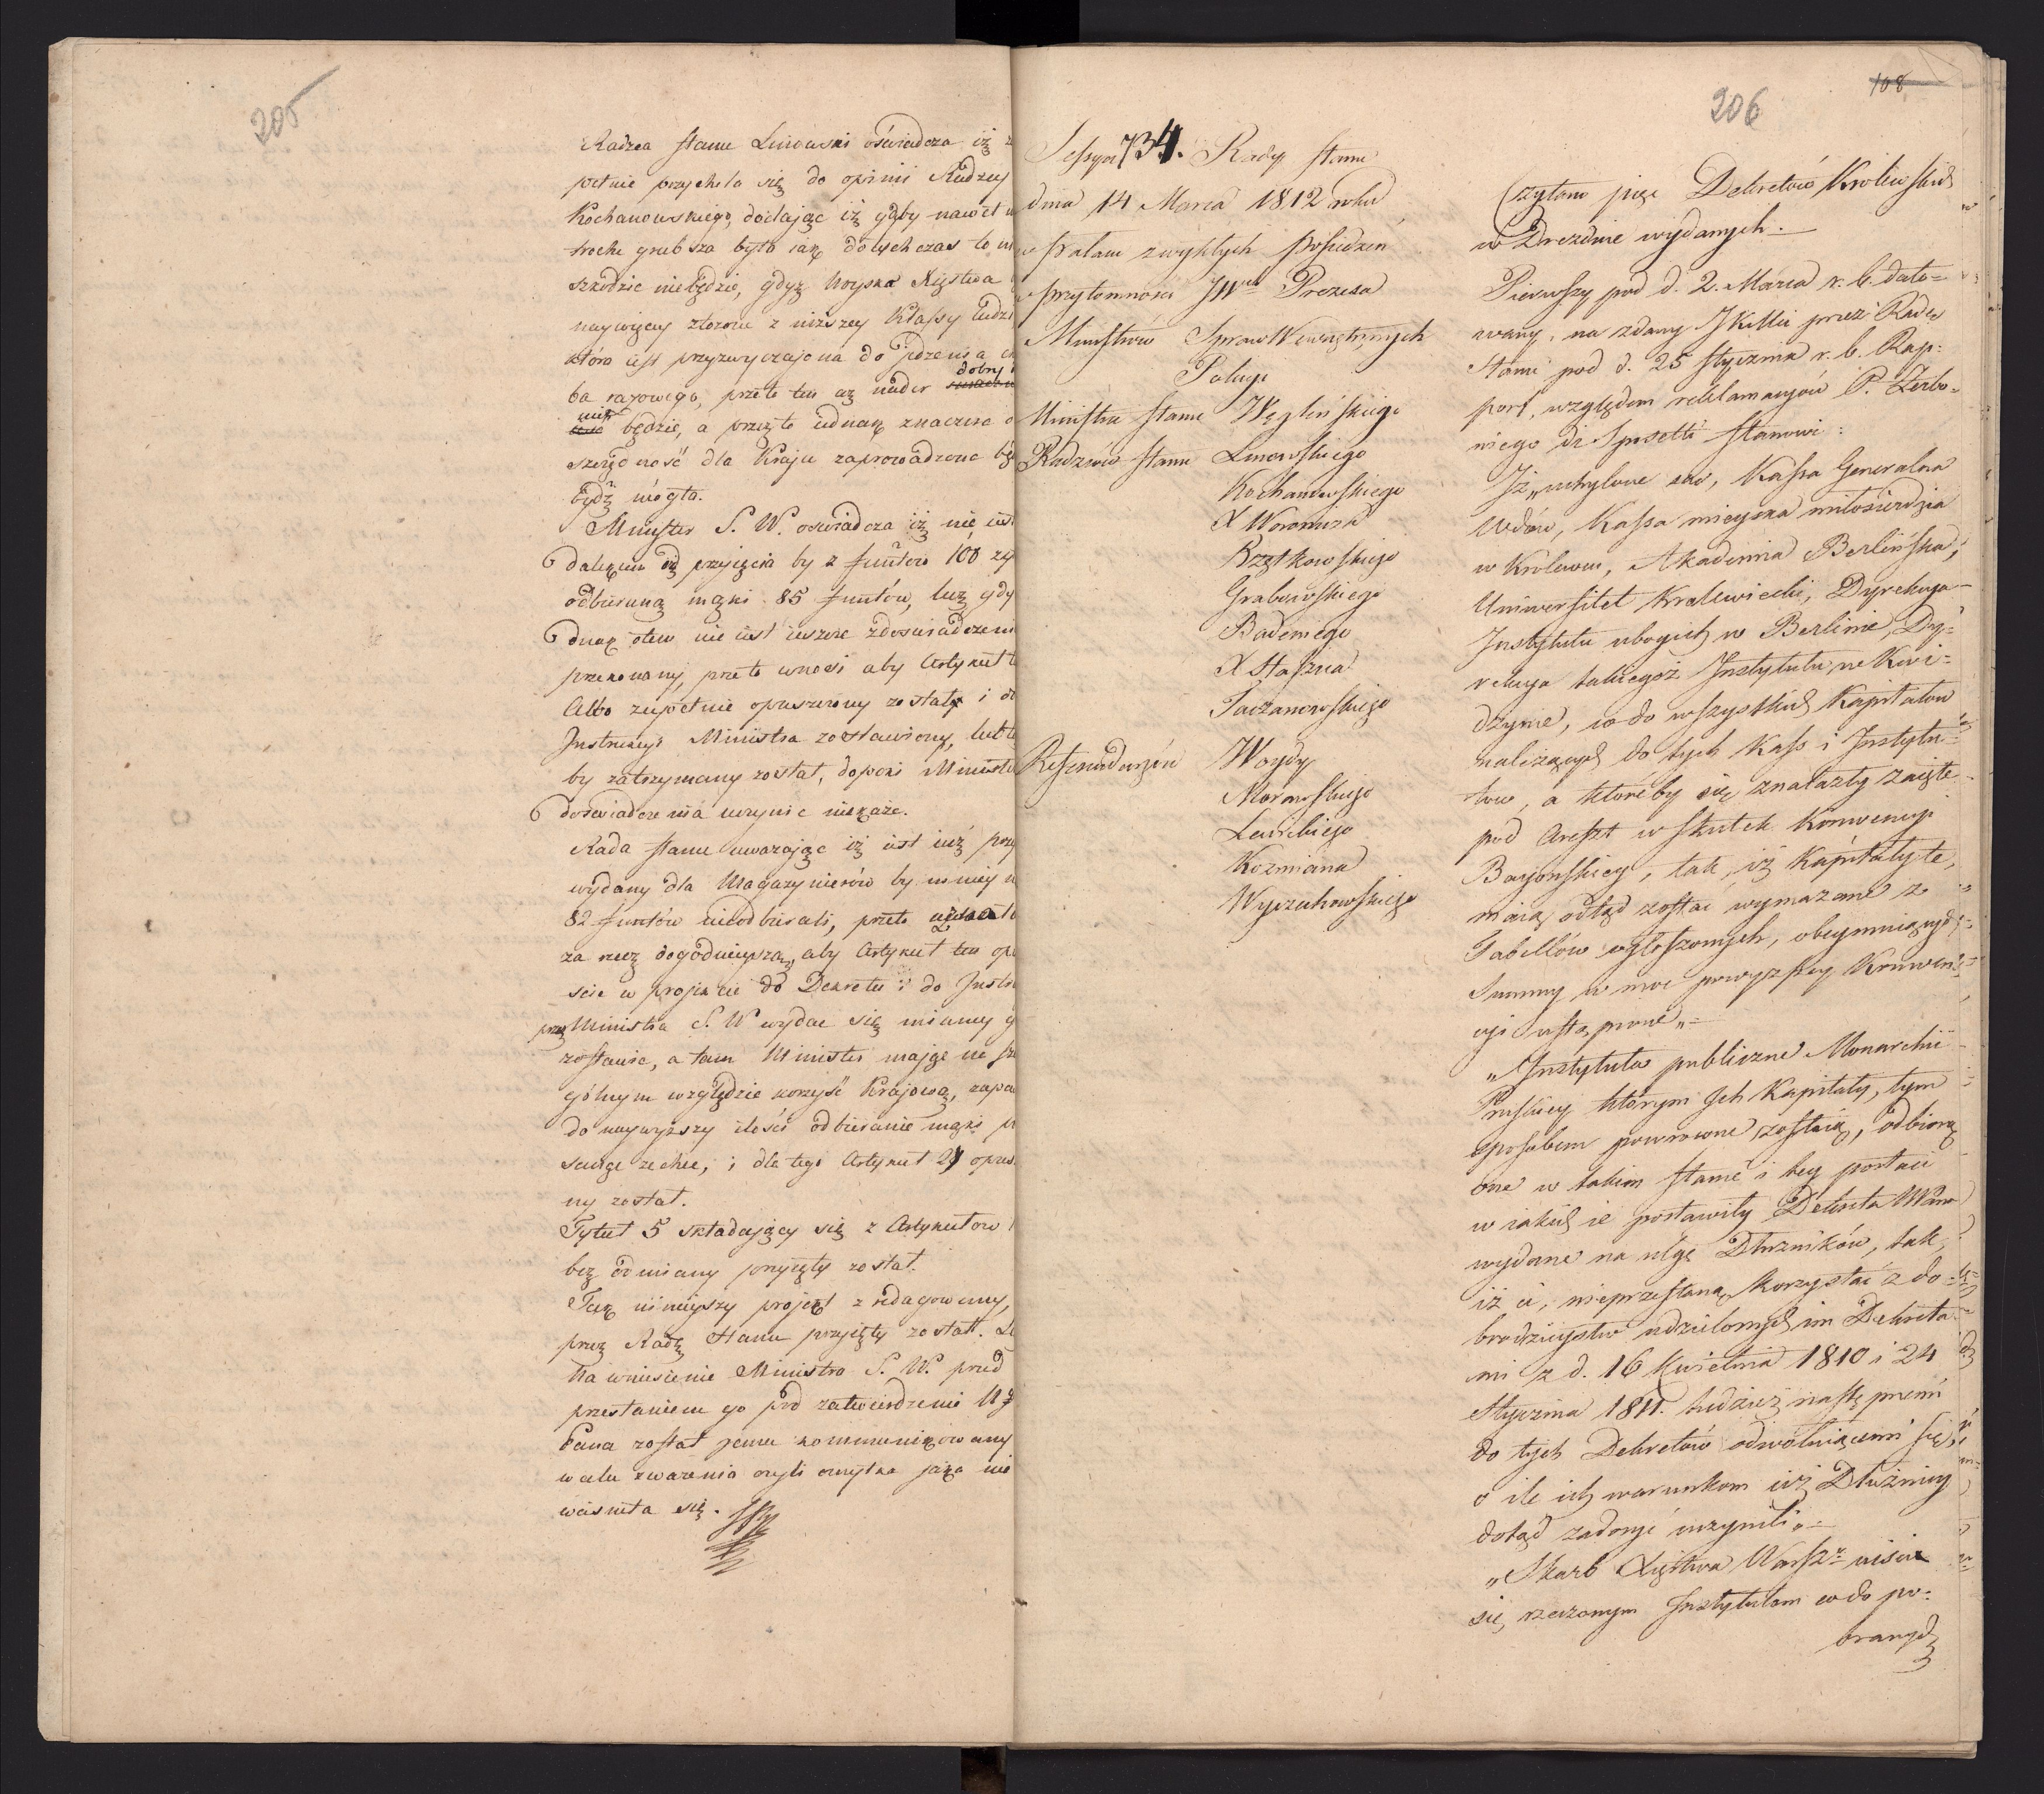 205
Radzca Stanu Linowski oświadcza iż
pełnie przychila się do opinii Radzcy
Kochanowskiego, dodając iż gdyby nawet
troche grubsza była iak dotychczas to
szkodzić niebędzie, gdyż Woyska Xięstwa
naywięcey złożone z niższey Klassy ludzi
która iest przyzwyczajona do jedzenia
ba razowego, przeto ten aż nader dobry
będzie, a przez to iednak znaczna
szczędność dla Kraju zaprowadzona
bydź mogła.
Minister S. W. oświadcza iż nie iest
dalekim od przyięcia by z funtów 100
odbieraną mąki 85 funtów, lecz gdy
dnak o tem nie iest ieszcze z doświadczenia
przekonany, przeto wnosi aby Artykuł
Albo zupełnie opuszczony został i do
Instrukcyi Ministra zostawiony, lub
by zatrzymany został, dopóki Minister
doświadczenia uczynić nie każe.
Rada Stanu uważając iż iest iuż
wydany dla Magazynierów by mniey
82 funtów nieodbierali, przeto
za rzecz dogodnieyszą, aby Artykuł ten
ście w projekcie do Dekretu i do
przez Ministra S. W wydać się mianey
zostawić, a tam Minister mając na
gólnym względzie korzyść Krajową,
do naywyższy ilości odbieranie mąki
sadzę zechce, i dla tego Artykuł 24
ny został.
Tytuł 5 składający się z Artykułów
bez odmiany przyięty został.
Tak ninieyszy projekt zredagowany,
przez Radę Stanu przyięty został.
Na wniesienie Ministra S. W. przed
przesłaniem go pod zatwierdzenie
Pana został jemu kommunikowany
w celu zważenia czyli omyłka jaka nie
wcisneła się.
108
206
Sessya 734. Rady Stanu
dnia 14 Marca 1812 roku
w Pałacu zwykłych Posiedzeń
w przytomności JW Prezesa
Ministrów Spraw Wewnętrznych
Policyi
Ministra Stanu Węgleńskiego
Radzców Stanu Linowskiego
Kochanowskiego
X Woronicza
Rzątkowskiego
Grabowskiego
Badeniego
X Staszica
Taczanowskiego
Referendarzów Woydy
Morawskiego
Lewickiego
Kozmiana
Wyczechowskiego
Czytano pięć Dekretów Królewskich
w Dreznie wydanych.
Pierwszy pod d. 2. Marca r. b. dato=
wany, na zdany JKMci przez Radę
Stanu pod d. 25 Stycznia r. b. Rap=
port, względem reklamacyów P. Zerbo=
niego di Sposetti stanowi:
Iż „uchylone są, Kassa Generalna
Wdów, Kassa mieyska miłosierdzia
w Królewcu, Akademia Berlińska,
Uniwersitet Krolewiecki, Dyrekcya
Instytutu ubogich w Berlinie, Dy=
rekcya takiegoż Instytutu, w Kwi=
dzynie, co do wszystkich Kapitałów
należących do tych Kass i Instytu=
tów, a któreby się znalazły zaięte
pod Areszt w skutek Konwencyi
Bayonskiey, tak, iż Kapitały te,
maią odtąd zostać wymazane z
Tabellów ogłoszonych, obeymuiących
Summy w moc powyższey Konwen=
cyi ustąpione„=
„Instytuta publiczne Monarchii
Pruskiey którym Ich Kapitały, tym
sposobem powrócone zostaią, odbiorą
one w takim stanie i tey postaci
w iakich ie postawiły Dekreta
wydane na ulgę Dłużników, tak,
iż ci, nieprzestaną korzystać z do=
brodzieystw udzielonych im Dekreta
mi z d. 16 Kwietnia 1810 i 24
Stycznia 1811. tudzież następnemi
do tych Dekretów odwołuiącemi się,
o ile ich warunkom iuż Dłużnicy
dotąd zadosyć uczynili„=
„Skarb Xięstwa Warszo uiści
się rzeczonym Instytutom co do po=
branych